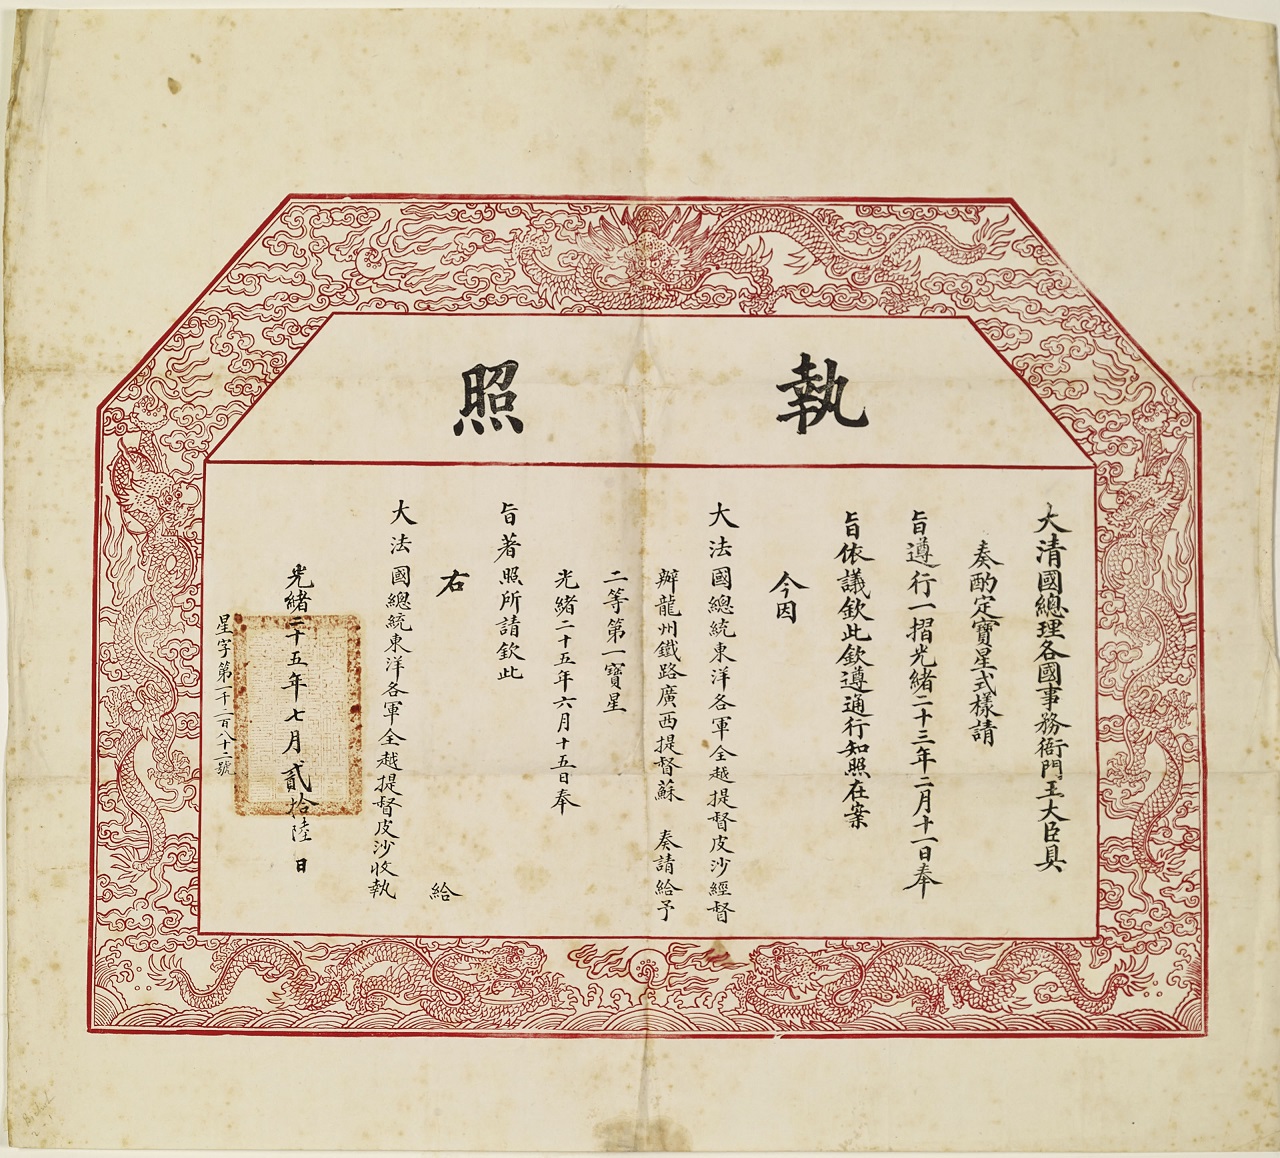 執照
大清國總理各國事務衙門王大臣具
奏酌定寶星式樣請
旨遵行一摺光緒二十三年二月十一日奉
旨依議欽此欽遵通行知照在案
今因
大法國總統東洋各軍全越提督皮沙經督
辦龍州鐵路廣西提督蘇 奏請給予
二等第一寶星
光緒二十五年六月十五日奉
旨著照所請欽此
右 給
大法國總統東洋各軍全越提督皮沙收執
光緒二十五年七月貳拾陸日
星字第一千二百八十二號